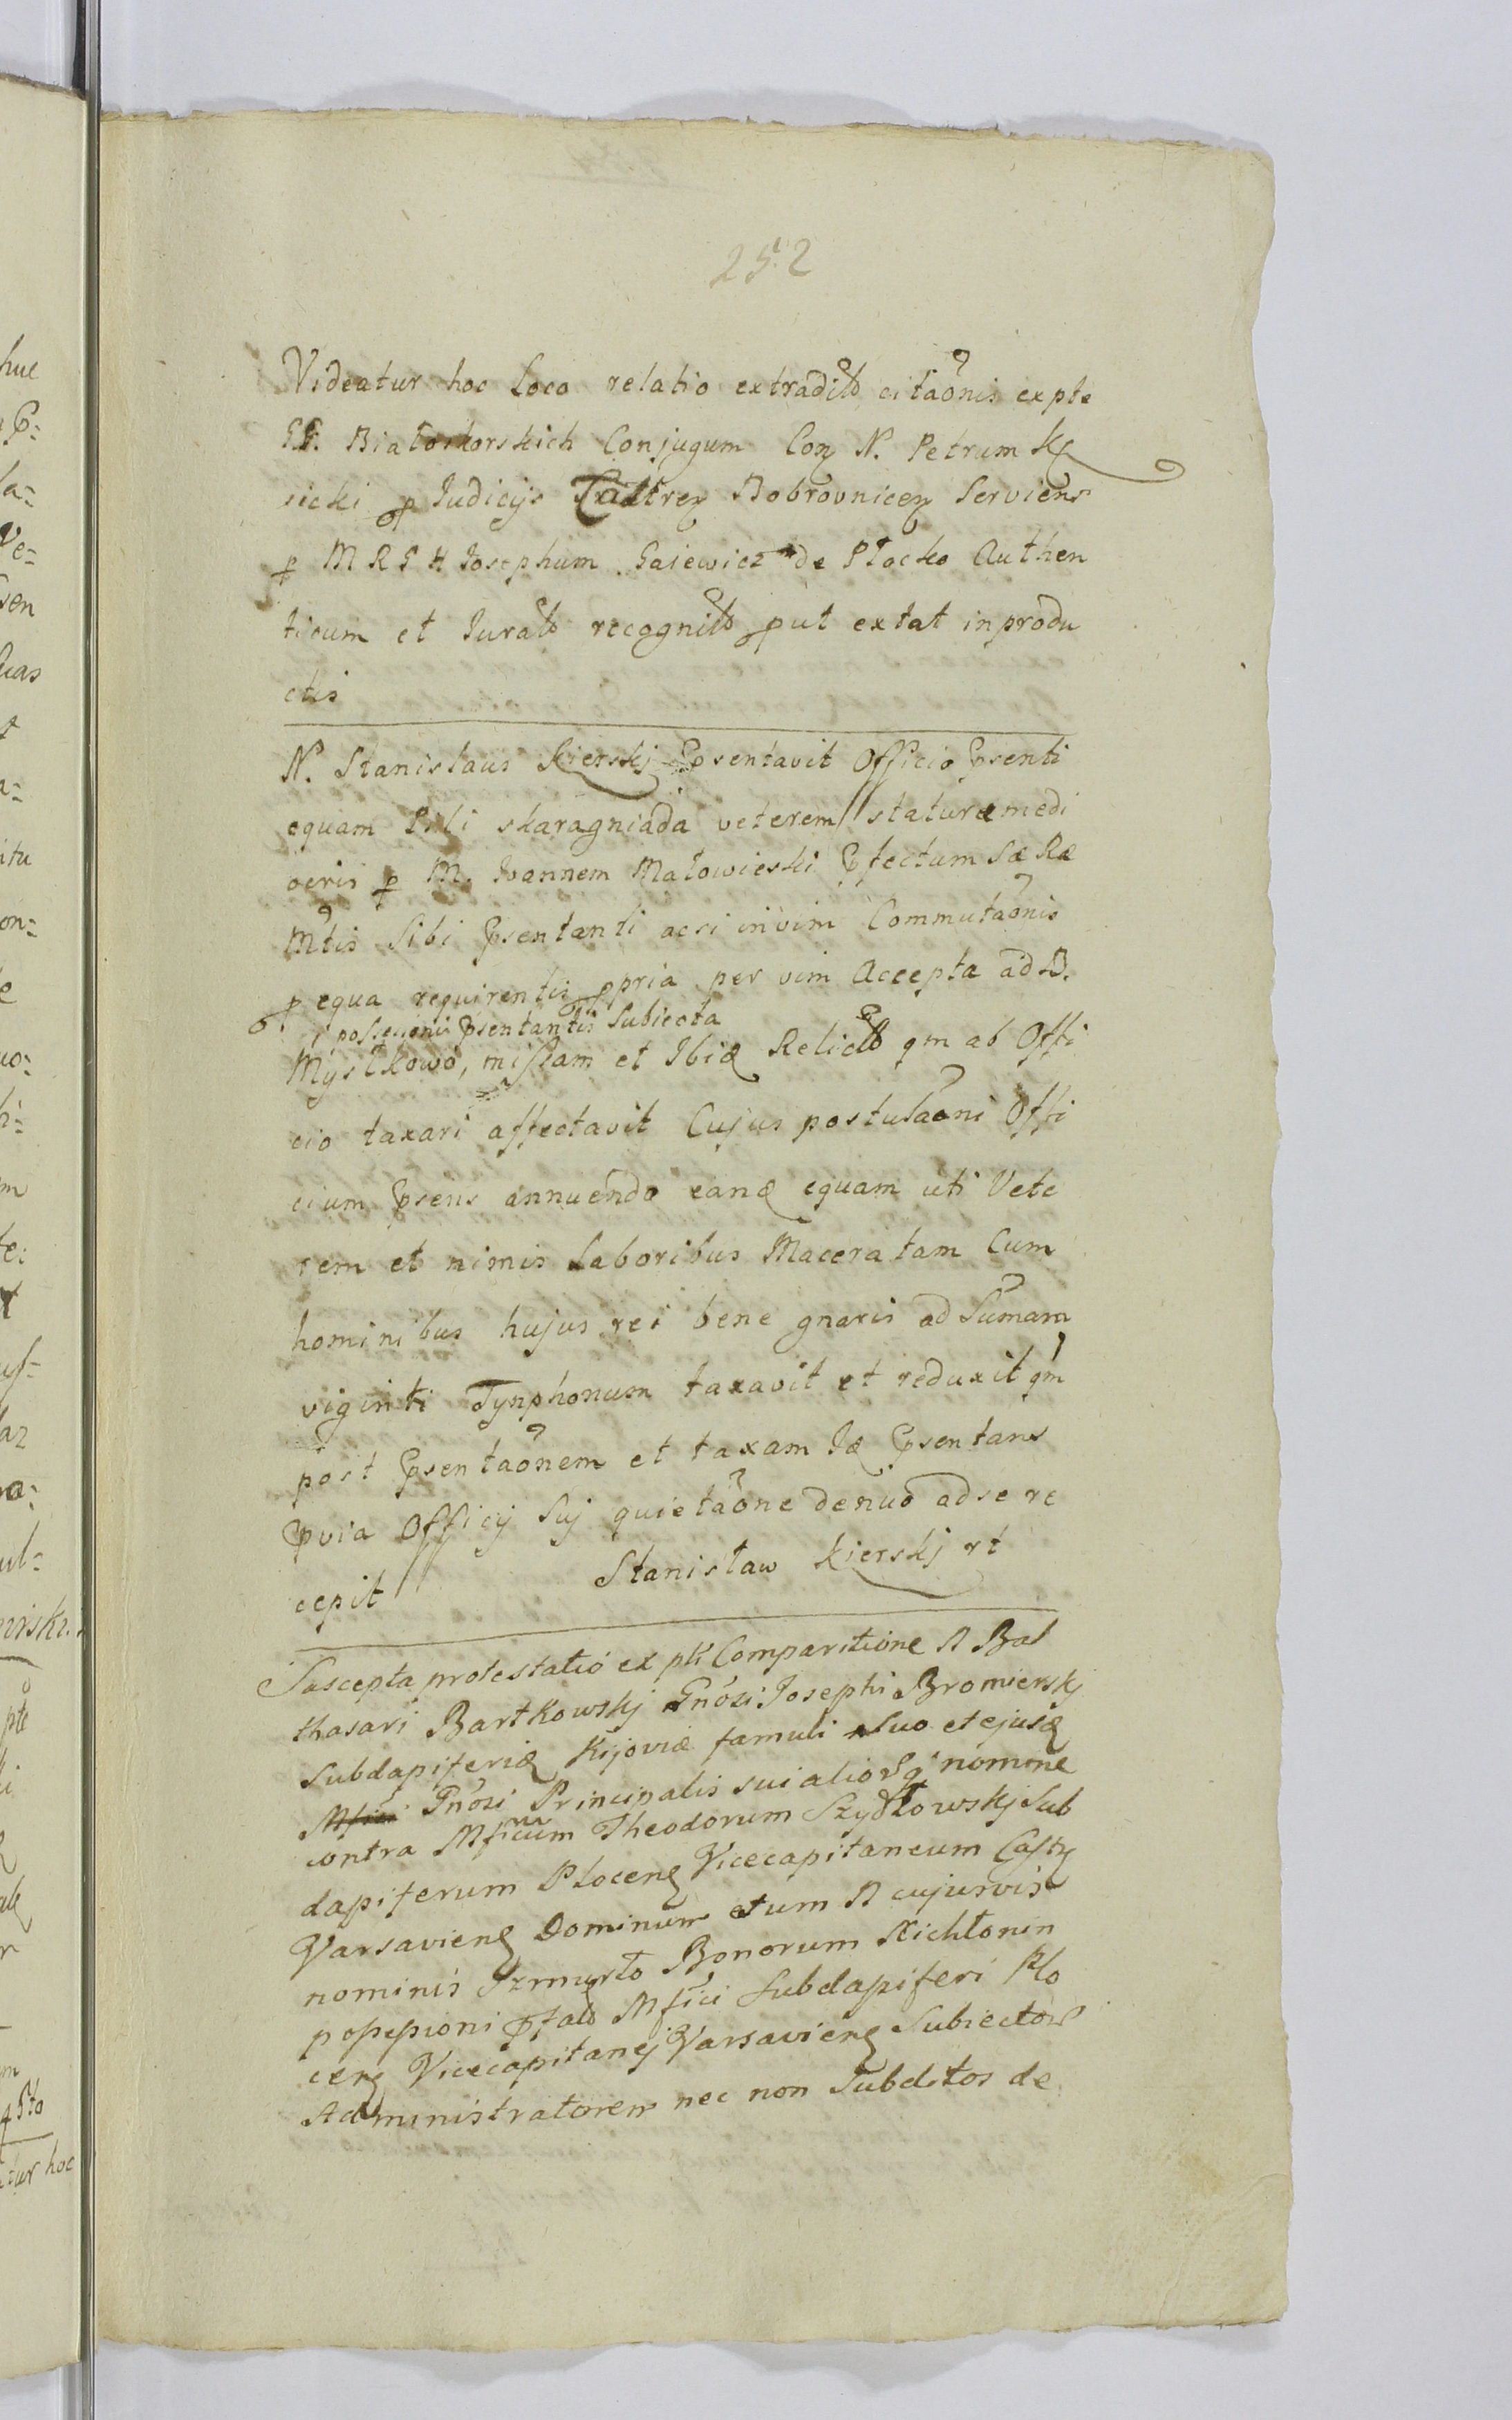 252
Videatur hoc Loco relatio extradit citaonis expte
GG. Białoskorskich Conjugum Con N. Petrum
sicki p Judicijs Castren Bobrovnicen Serviens
p M R G H Josephum Gaiewicz de Płocko Authen
ticum et Jurat recognit put extat in produ
ctis
N. Stanislaus Kierskj Psentavit Officio Psenti
equam Pili skaragniada veterem staturæ medi
ocris p M. Joannem Małowieski Pfectum Sæ Ræ
Mtis Sibi Psentanti acsi in vim Commutaonis
p equa requirentis ppria per vim Accepta ad B.
possessioni Psentantis Subiecta
Myśłkowo, missam et Ibiq Relict qm ab Offi
cio taxari affectavit Cujus postulaoni Offi
cium Psens annuendo eanq equam uti Vete
rem et nimis Laboribus Maceratam Cum
hominibus hujus rei bene gnaris ad Sumam
viginti Tynphonum taxavit et reduxit qm
post Psentaonem et taxam Iq Psentans
Pvia Officij Suj quietaone denuo ad se re
cepit Stanisław Kierskj rt
Suscepta protestatio ex pli Comparitione N Bal
thasari Bartkowskj Gnosi Josephi Bromierskj
Subdapiferiq Kijoviæ famuli Suo et ejusq
Mfici Gnosi Principalis sui aliorq nomine
contra Mficum Theodorum Szydłowskj Sub
dapiferum Plocens Vicecapitaneum Castr
Varsaviens Dominum et um N cujusvis
nominis Szmurło Bonorum Kichłonin
possessioni Pfat Mfici Subdapiferi Plo
cens Vicecapitanej Varsaviens Subiector
Administratorem nec non Subditos de